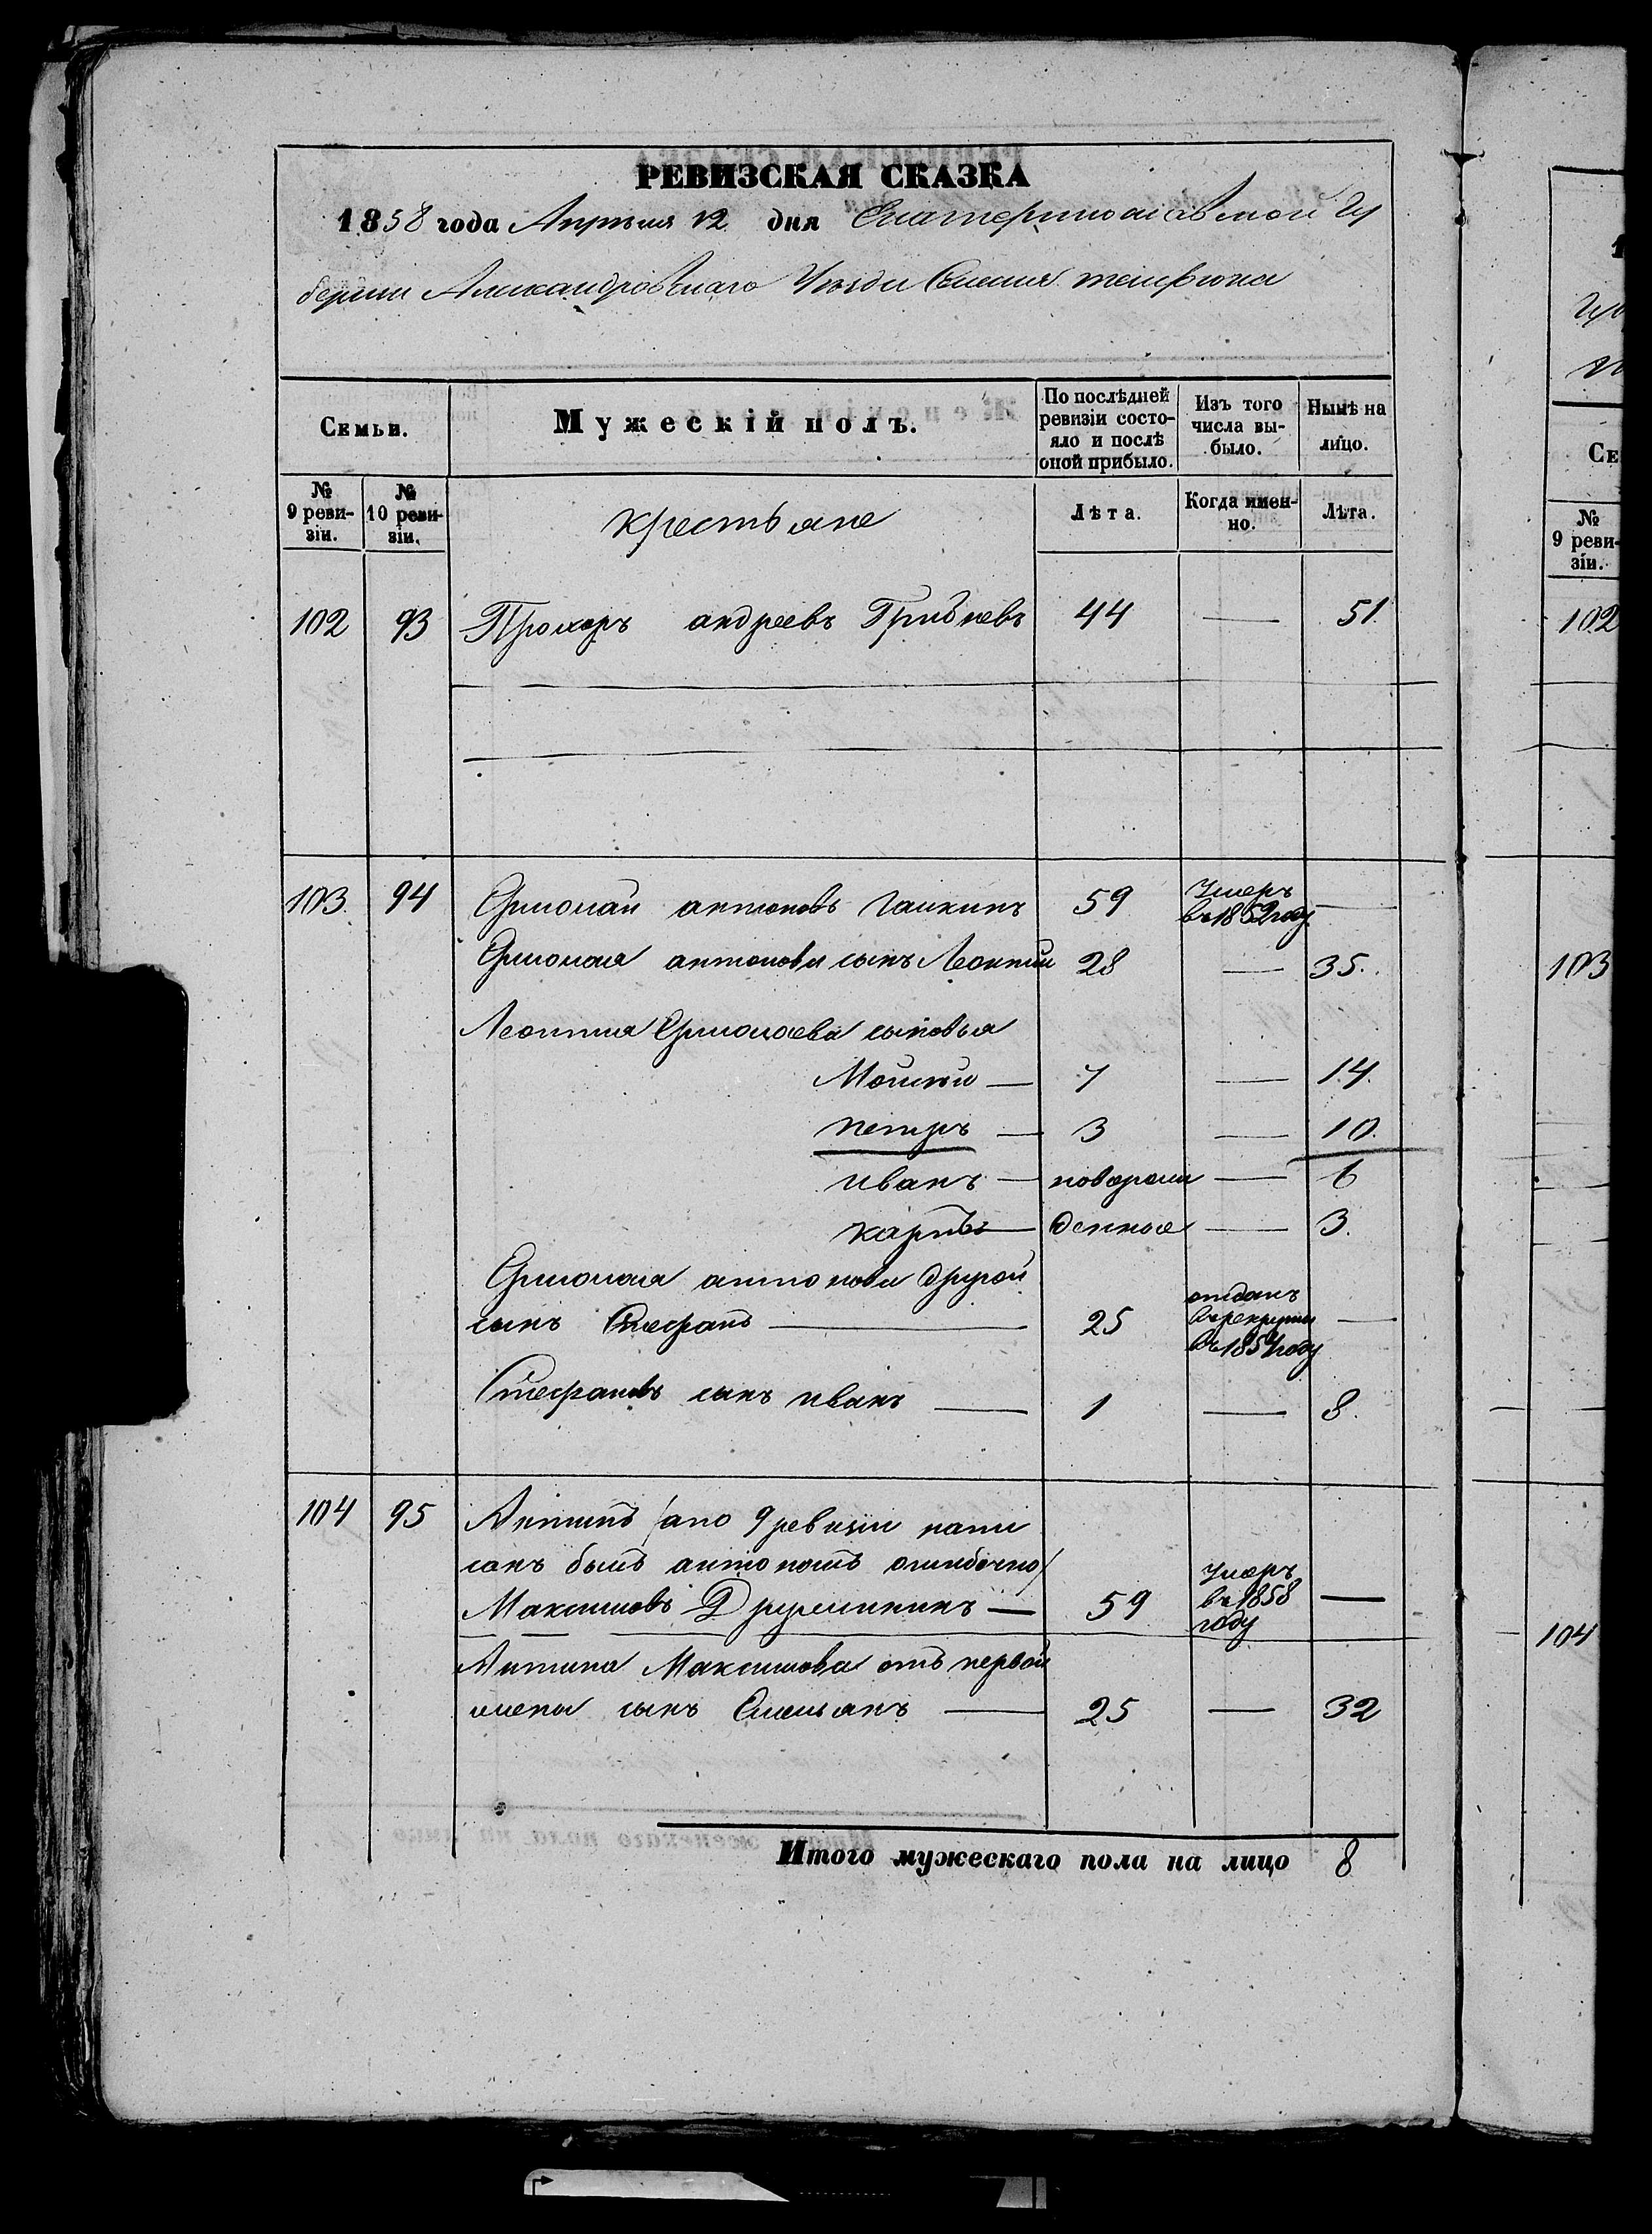 РЕВИЗСКАЯ СКАЗКА
1858 года Апрѣля 12 дня Екатеринославской Гу
берніи Александровскаго Уѣзда Селенія
Семьи. Мужескій полъ. По послѣдней ревизіи состояло и послѣ оной прибыло. Изъ того числа выбыло. Нынѣ на лицо.
№ 9 ревизіи. № 10 ревизіи. крестьяне Лѣта. Когда именно. Лѣта.
102 93 Прохоръ андреевъ Грибневъ 44 — 51.
103. 94 Ермолай антоновъ Галкинъ 59 Умеръ въ 1852 году —
Ермолая антонова сынъ Леонтій 28 — 35.
Леонтія Ермолаева сыновья
Мойсѣй — 7 — 14.
петръ — 3 — 10.
иванъ — новорож — 6
карпъ — денные — 3.
Ермолая антонова другой
сынъ Стефанъ — 25 отданъ въ рекруты въ 1854 году —
Стефановъ сынъ иванъ — 1 — 8.
104 95 Антипъ /а по 9 ревизіи напи
санъ былъ антономъ ошибочно/
Максимовъ — 59 Умеръ въ 1858 году —
Антипа Максимова отъ первой
жены сынъ Емельянъ — 25 — 32
Итого мужескаго пола на лицо 8
№ 9 реви-
зіи.
102
103
104